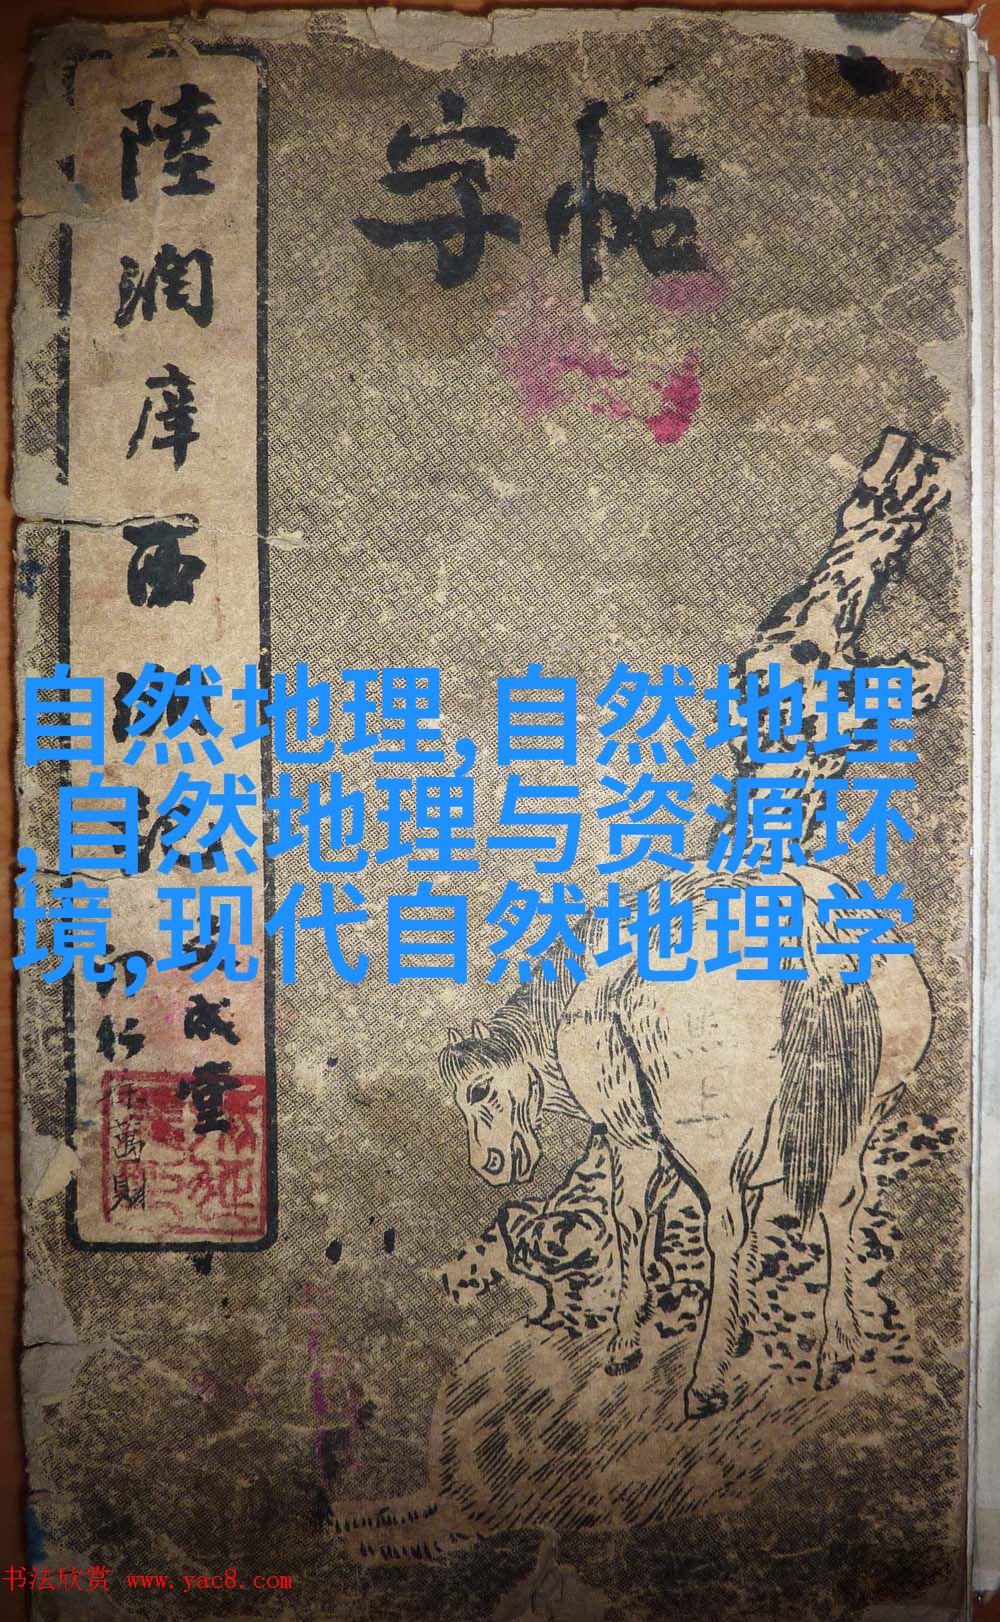 字帖
陸潤庠西湖
成堂
印行
徐萬財
自然地理,自然地理
,自然地理与资源环
境,现代自然地理学
书法欣赏 www.yac8.com